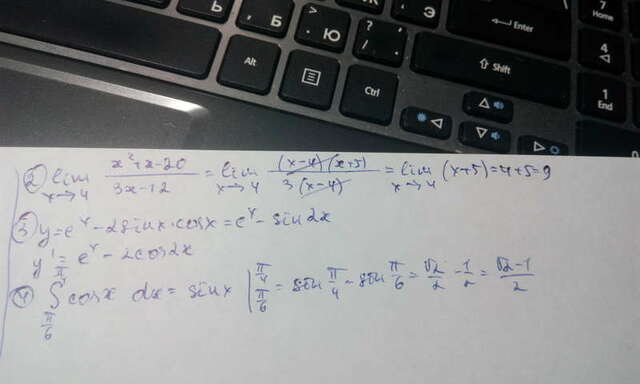 Ь
Б
>
.
Ю
?
,
/
.
Э
Enter
7
Home
Alt
Ctrl
Shift
4
1
End
② lim x→4 (x²+x-20)/(3x-12) = lim x→4 (x-4)(x+5)/3(x-4) = lim x→4 (x+5) = 4+5=9
③ y=eˣ-2sinx·cosx=eˣ-sin2x
y'=eˣ-2cos2x
④ ∫ π/6 π/4 cosx dx = sinx | π/6 π/4 = sin π/4 - sin π/6 = √2/2 - 1/2 = (√2-1)/2